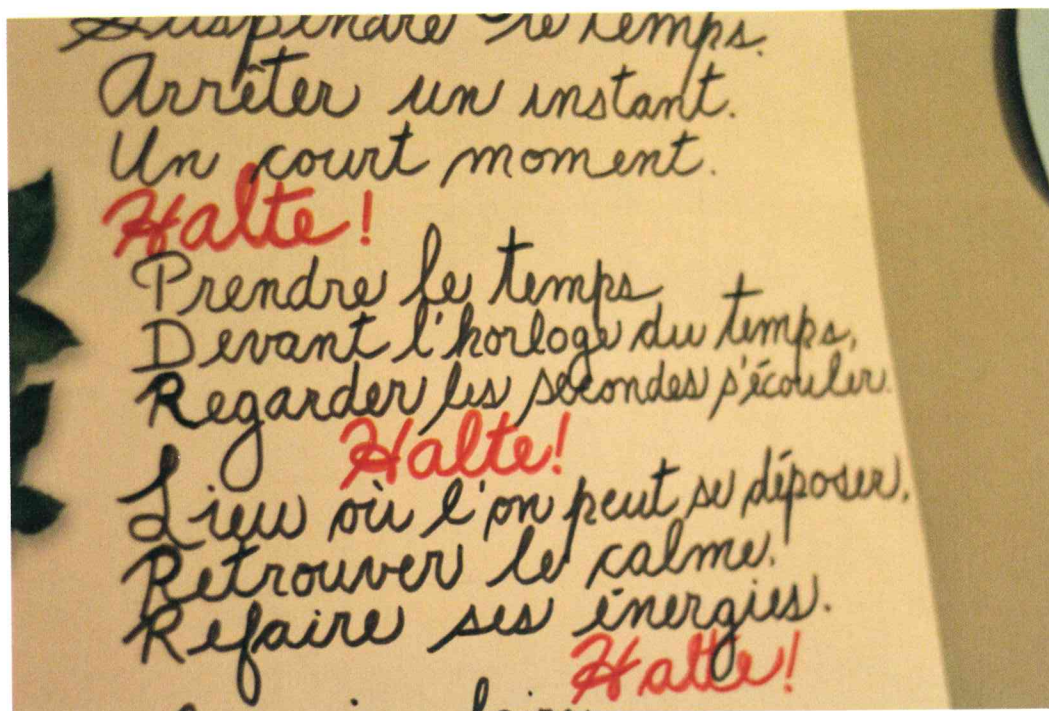 Suspendre le temps.
Arrêter un instant.
Un court moment.
Halte!
Prendre le temps
Devant l'horloge du temps,
Regarder les secondes s'écouler.
Halte!
Lieu où l'on peut se déposer,
Retrouver le calme.
Refaire ses énergies.
Halte!